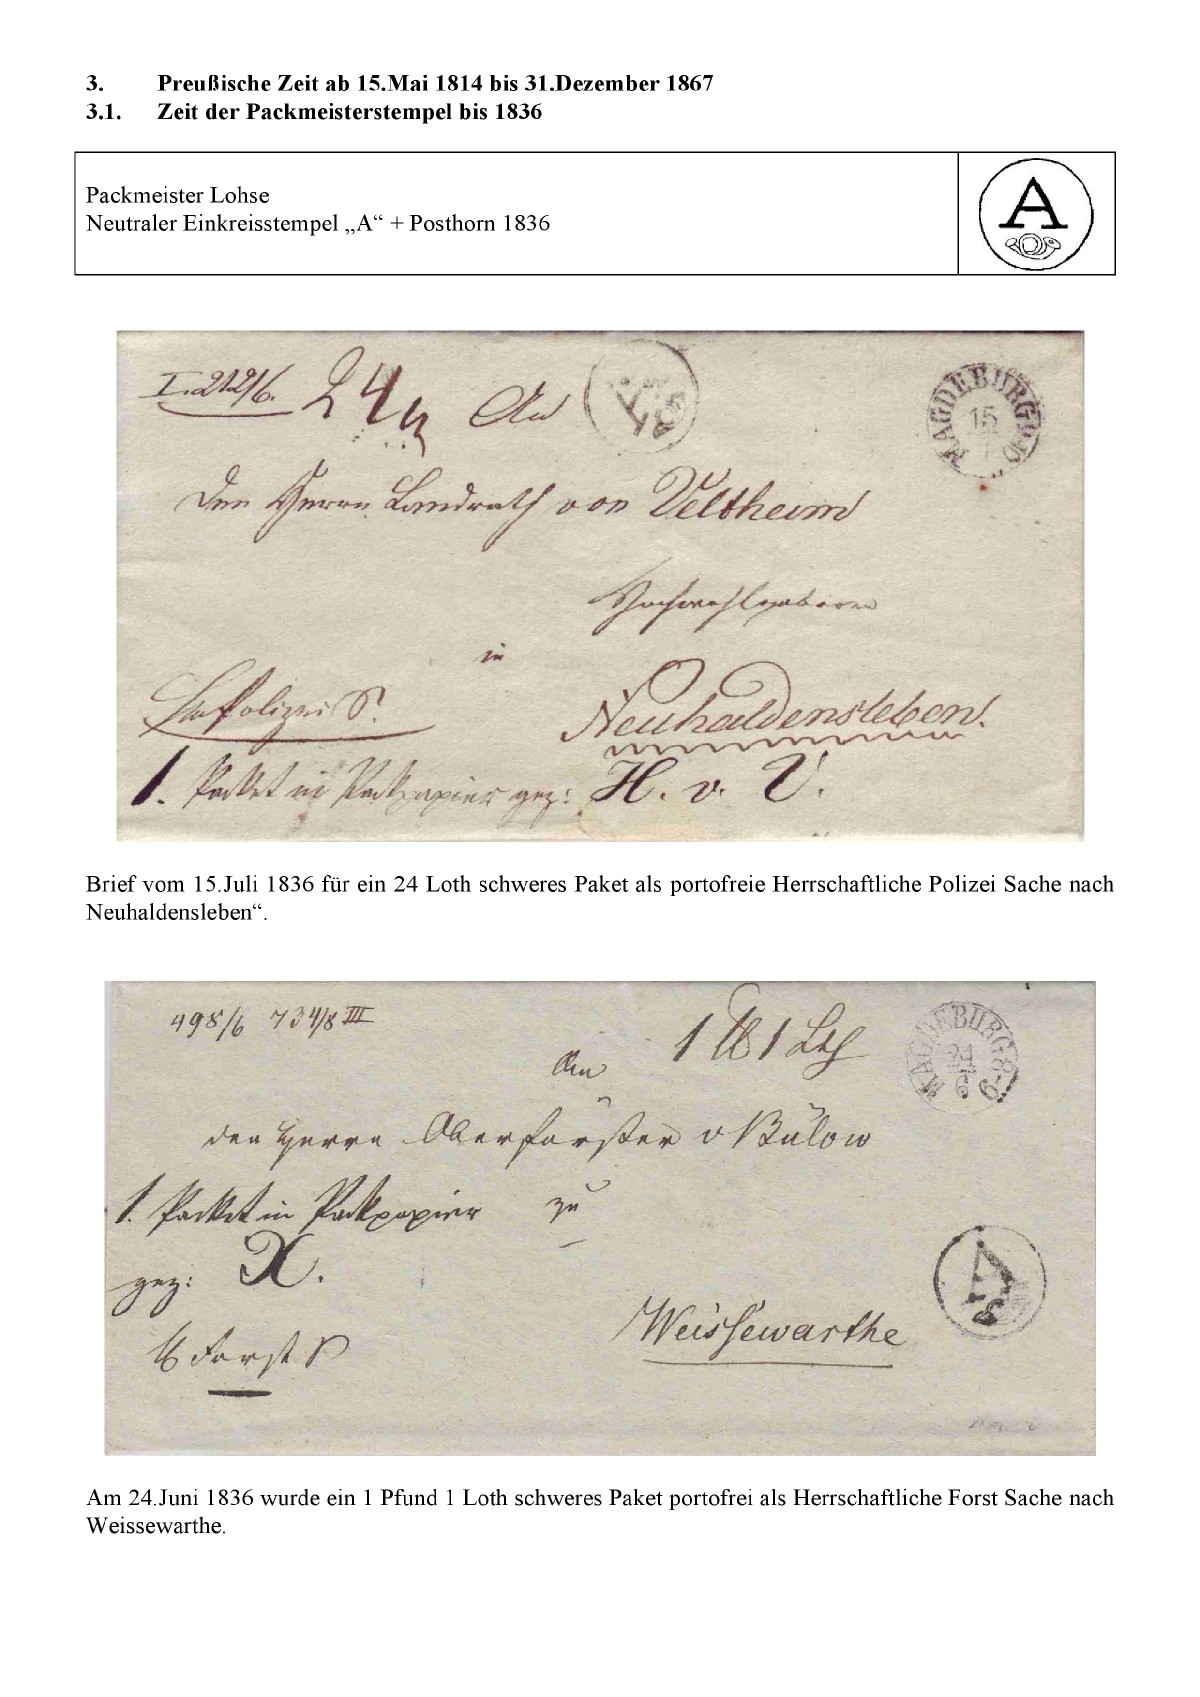 3. Preußische Zeit ab 15.Mai 1814 bis 31.Dezember 1867
3.1. Zeit der Packmeisterstempel bis 1836
Packmeister Lohse
Neutraler Einkreisstempel „A“ + Posthorn 1836
A
I. 212/6. 24 An A
MAGDEBURG 15
den Herrn Landrath von Veltheim
Hochwohlgeboren
in
Polizei S.
Neuhaldensleben.
1. Packet in Packpapier gez: H. v. V.
Brief vom 15.Juli 1836 für ein 24 Loth schweres Paket als portofreie Herrschaftliche Polizei Sache nach
Neuhaldensleben“.
498/6 734/8 III
1 ℔ 1 Lth
MAGDEBURG 24 6
An
den Herrn Oberförster v Bülow
1. Packet in Packpapier zu
gez: X.
A
Weissewarthe
Forst S
Am 24.Juni 1836 wurde ein 1 Pfund 1 Loth schweres Paket portofrei als Herrschaftliche Forst Sache nach
Weissewarthe.